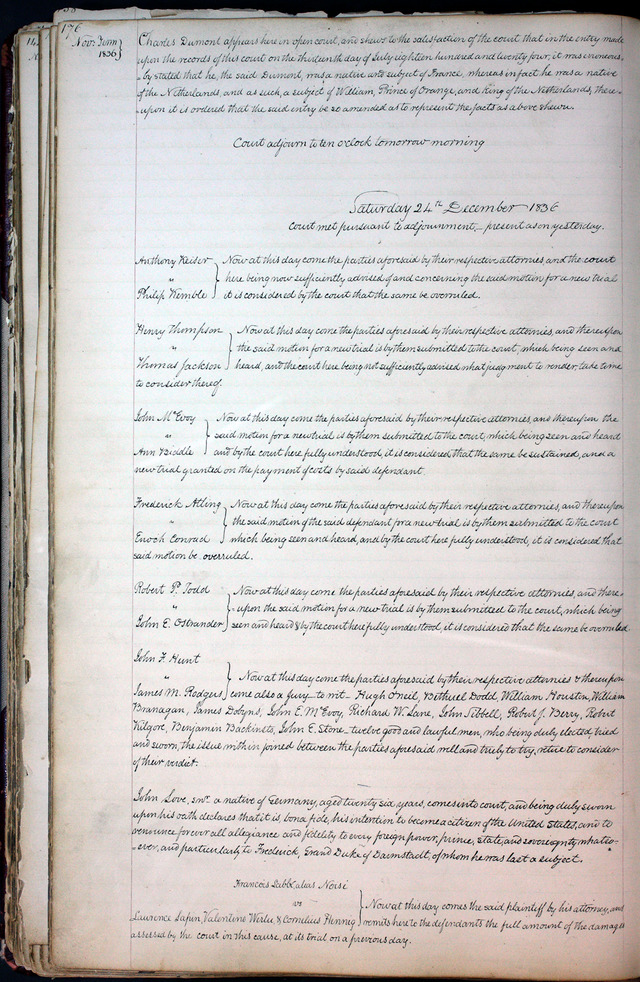 176
Nov: Term
1836
Charles Dumont appears here in open court, and shews to the satisfaction of the court that in the entry made
upon the records of this court on the thirteenth day of July eighteen hundred and twenty four, it was erroneous-
-ly stated that he, the said Dumont, was a native and subject of France, whereas in fact he was a native
of the Netherlands, and as such, a subject of William, Prince of Orange, and King of the Netherlands, there-
-upon it is ordered that the said entry be so amended as to represent the facts as above shewn.
Court adjourn to ten o'clock tomorrow morning
Saturday 24th December 1836
Court met pursuant to adjournment,— present as on yesterday.
Anthony Keiser
"
Philip Kemble
Now at this day come the parties aforesaid by their respective attornies, and the court
here being now sufficiently advised of and concerning the said motion for a new trial
it is considered by the court that the same be overruled.
Henry Thompson
"
Thomas Jackson
Now at this day come the parties aforesaid by their respective attornies, and thereupon
the said motion for a new trial is by them submitted to the court, which being seen and
heard, and the court here being not sufficiently advised what judgment to render, take time
to consider thereof.
John McEvoy
"
Ann Biddle
Now at this day come the parties aforesaid by their respective attornies, and thereupon the
said motion for a new trial is by them submitted to the court, which being seen and heard
and by the court here fully understood, it is considered that the same be sustained, and a
new trial granted on the payment of costs by said defendant.
Frederick Atling
"
Enoch Conrad
Now at this day come the parties aforesaid by their respective attornies, and thereupon
the said motion of the said defendant for a new trial is by them submitted to the court
which being seen and heard, and by the court here fully understood, it is considered that
said motion be overruled.
Robert P. Todd
"
John E. Ostrander
Now at this day come the parties aforesaid by their respective attornies, and there-
-upon the said motion for a new trial is by them submitted to the court, which being
seen and heard & by the court here fully understood, it is considered that the same be overruled
John F. Hunt
"
James M. Rodgers
Now at this day come the parties aforesaid by their respective attornies & thereupon
come also a jury to wit— Hugh O'neil, Bithuel Dodd, William Houston, William
Branagan, James Dobyns, John E. McEvoy, Richard W. Lane, John Sibbell, Robert J. Berry, Robert
Kilgore, Benjamin Backinsto, John E. Stone— twelve good and lawful men, who being duly elected, tried
and sworn, the issue within joined between the parties aforesaid well and truly to try, retire to consider
of their verdict.
John Love, a native of Germany, aged twenty six years, comes into court, and being duly sworn
upon his oath declares that it is, bona fide, his intention to become a citizen of the United States, and to
renounce forever all allegiance and fidelity to every foreign power, prince, state, and sovereignty whatso-
-ever, and particularly to Frederick, Grand Duke of Darmstadt, of whom he was last a subject.
Francois alias Noisi
vs
Laurence Valentine & Cornelius
Now at this day comes the said plaintiff by his attorney, and
remits here to the defendants the full amount of the damages
assessed by the court in this cause, at its trial on a previous day.